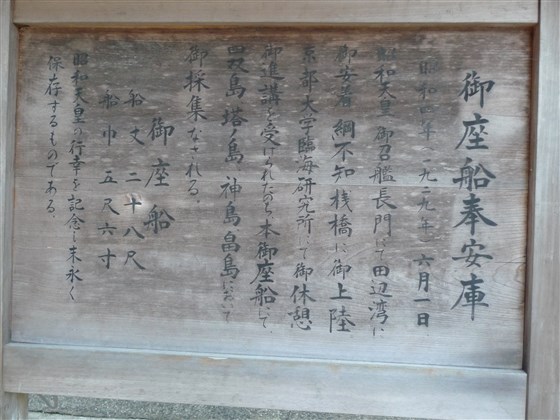 御座船奉安庫
昭和四年 一九二九年 六月一日
昭和天皇 御召艦長門にて田辺湾に
御安着 綱不知桟橋に御上陸
京都大学臨海研究所にて御休憩
御進講を受けられたのち本御座船にて
四双島 塔ノ島、神島畠島において
御採集なされる。
御座船
船丈 二十八尺
船巾 五尺六寸
昭和天皇の行幸を記念し末永く
保存するものである。